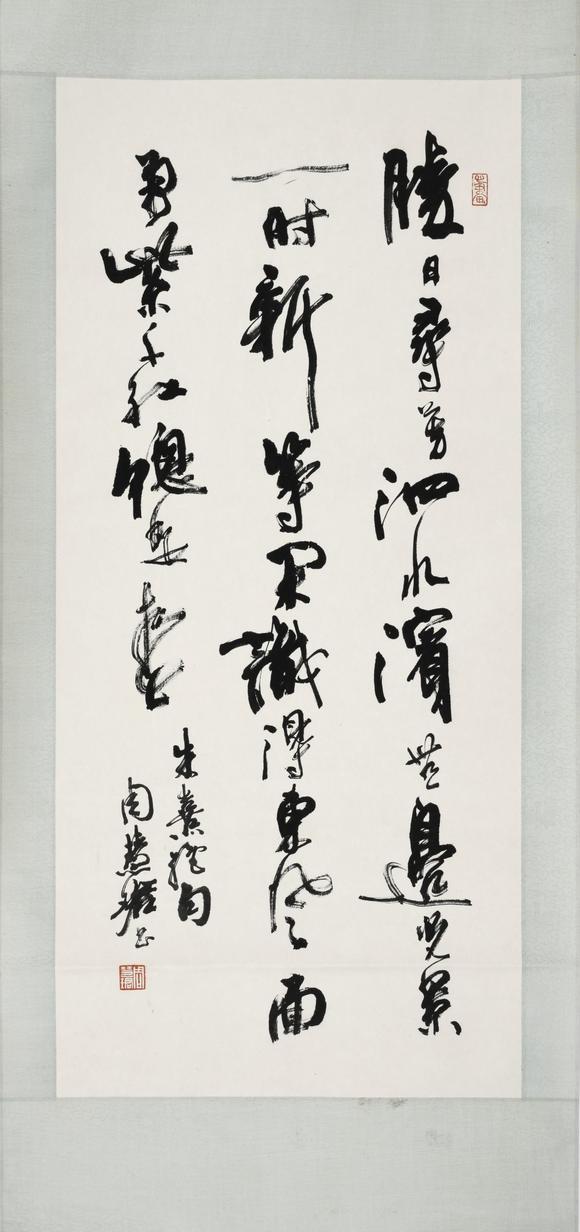 勝日尋芳泗水濱無邊光景
一时新等閑識得東風面
萬紫千紅總是春
朱熹詩句
周慧珺書